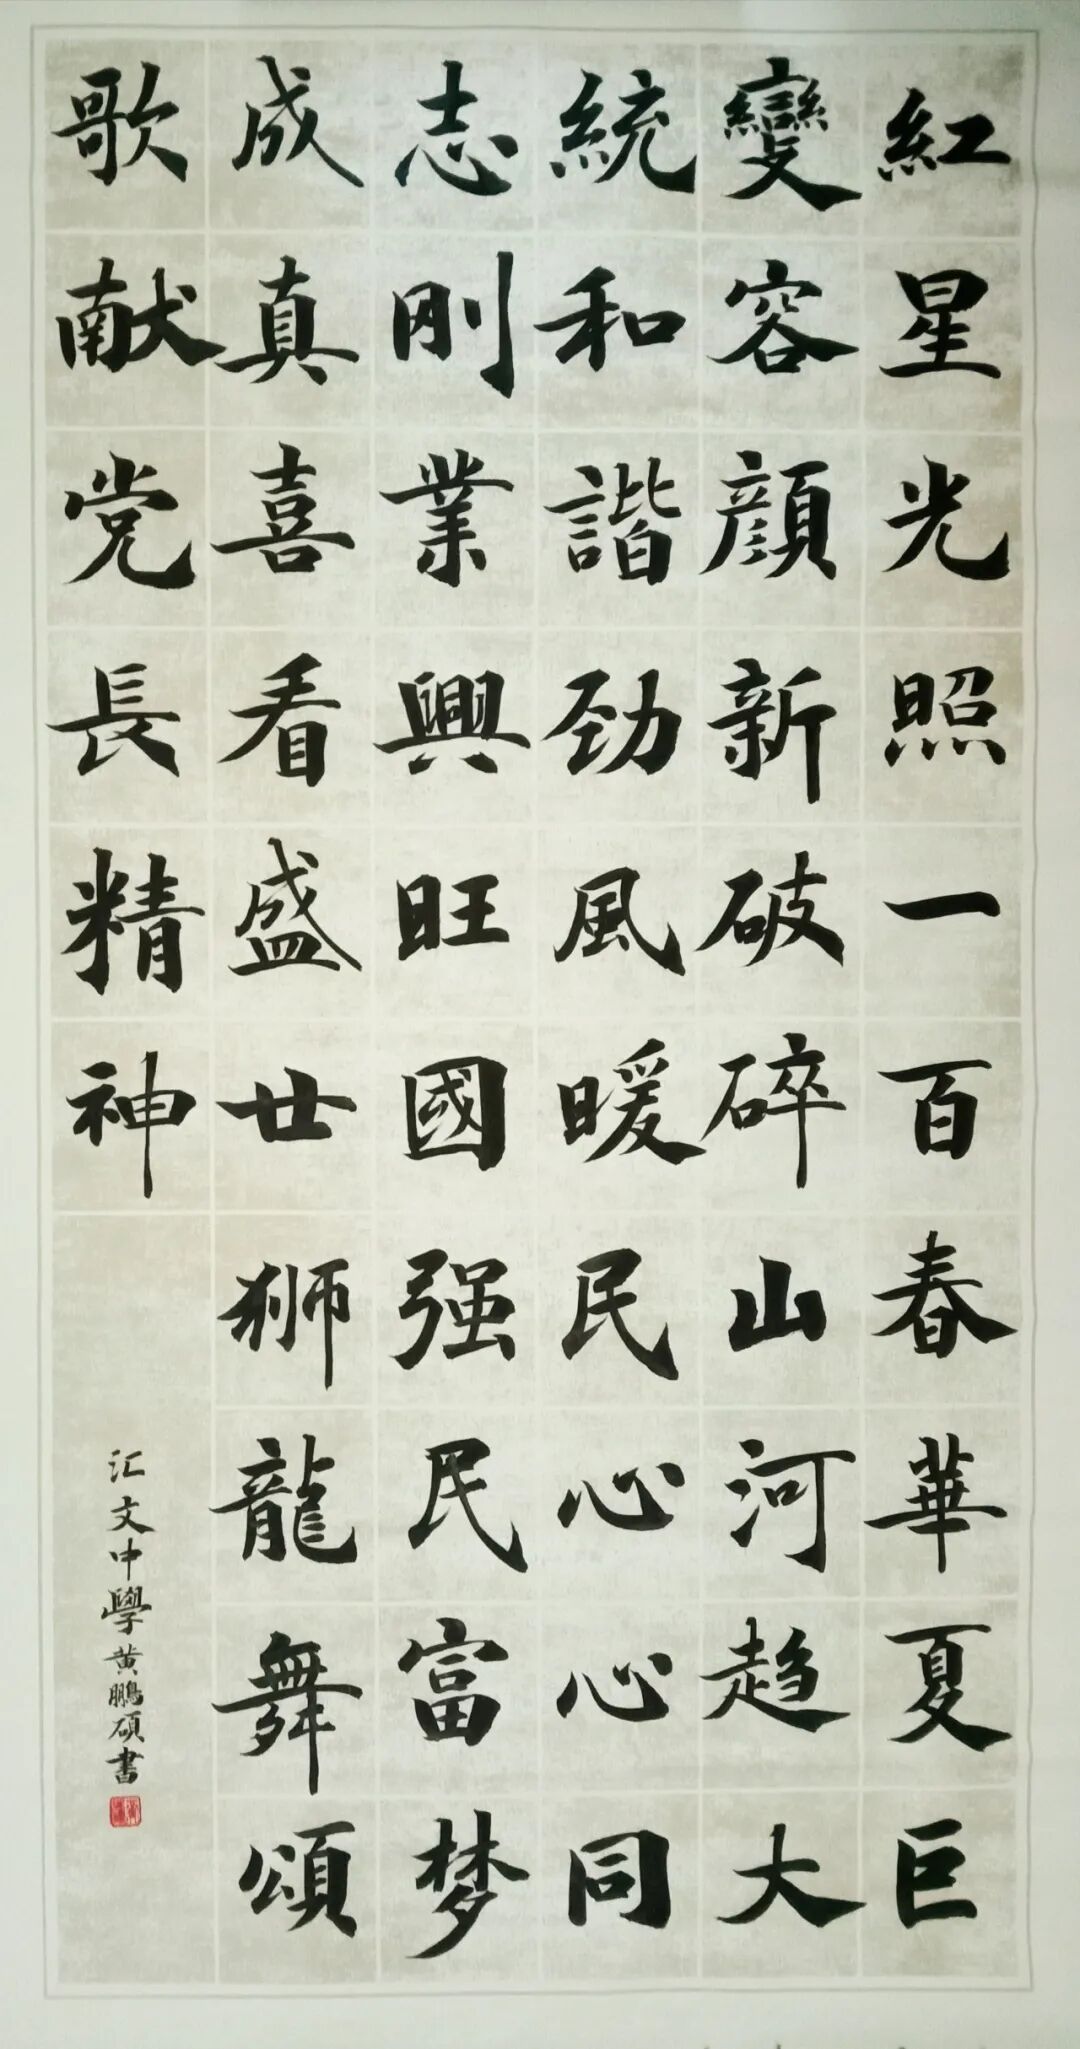 紅星光照一百春華夏巨
變容顔新破碎山河趋大
統和諧劲風暖民心心同
志刚業興旺國强民富梦
成真喜看盛廿狮龍舞頌
歌献党長精神
汇文中學黄鵬碩書